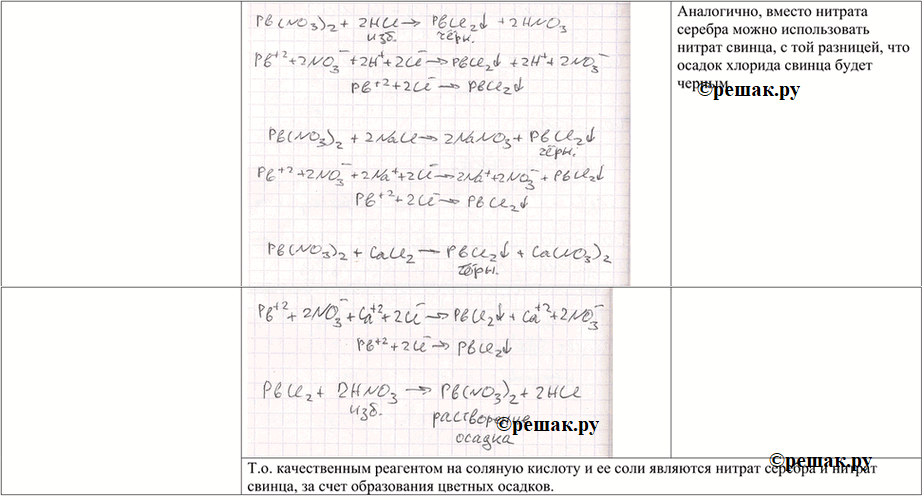 Pb(NO3)2 + 2HCl → PbCl2↓ + 2HNO3
изб. чёрн.
Pb+2+2NO3-+2H++2Cl-→PbCl2↓ +2H++2NO3-
Pb+2+2Cl-→ PbCl2↓
Pb(NO3)2 + 2NaCl→ 2NaNO3+ PbCl2↓
чёрн.
Pb+2+2NO3-+2Na++2Cl-→2Na++2NO3-+PbCl2↓
Pb+2+2Cl-→ PbCl2↓
Pb(NO3)2 + CaCl2 — PbCl2↓ + Ca(NO3)2
чёрн.
Аналогично, вместо нитрата
серебра можно использовать
нитрат свинца, с той разницей, что
осадок хлорида свинца будет
черным
©решак.ру
Pb+2+2NO3-+Ca+2+2Cl-→PbCl2↓+Ca+2+2NO3-
Pb+2+2Cl-→ PbCl2↓
PbCl2+ 2HNO3 → Pb(NO3)2+2HCl
изб. растворение
©решак.ру
осадка
©решак.ру
Т.о. качественным реагентом на соляную кислоту и ее соли являются нитрат серебра и нитрат
свинца, за счет образования цветных осадков.